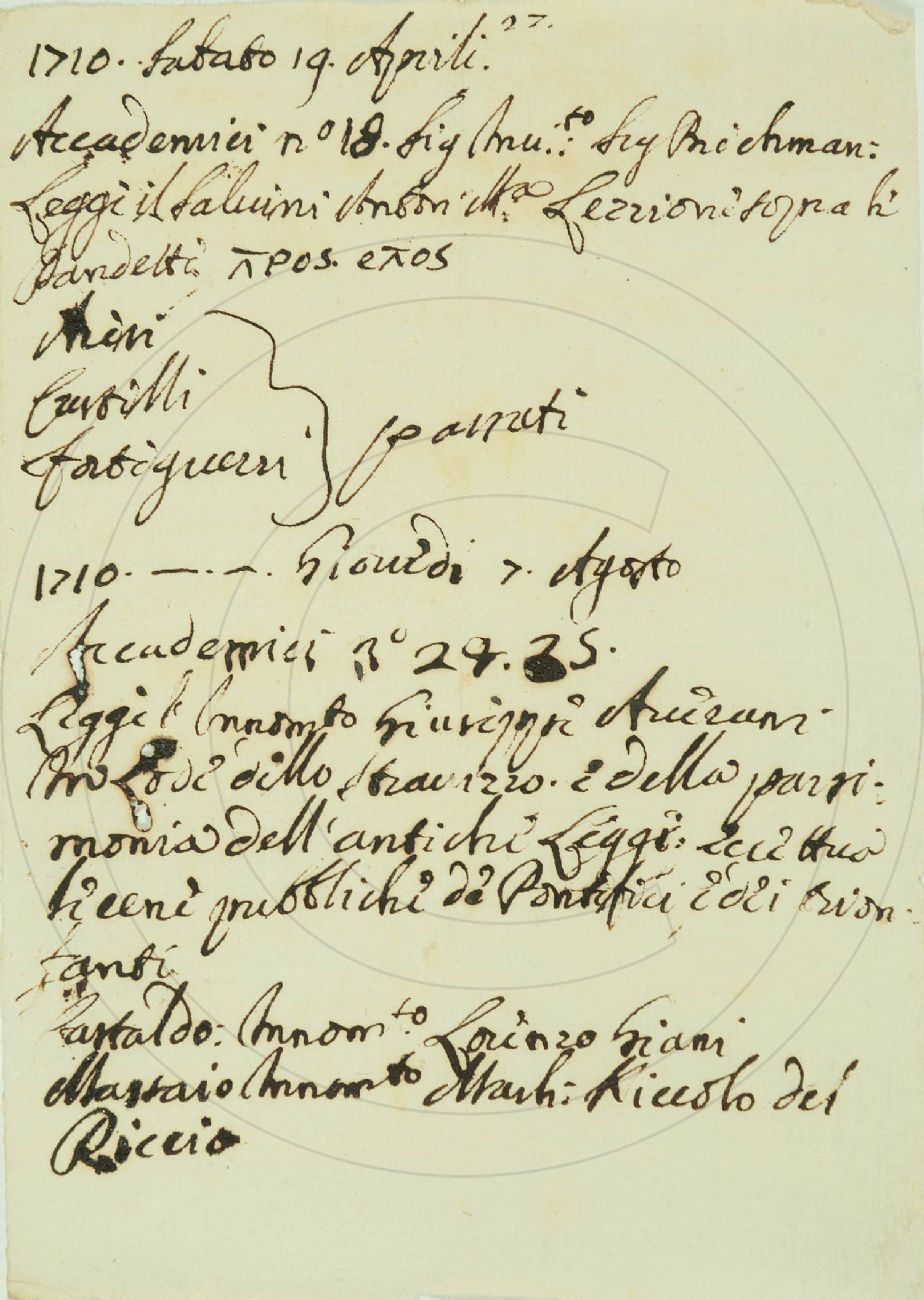 1710. Sabato 19. Aprile. 27.
Accademici nº 18. Sig Innu.:to Sig Richman:
Leggi il Salvini Anton Mª Lezzione sopra le
Pandette προς. επος
Casotilli
Fortiguerri } passati
1710. —.—. Giovedi 7. Agosto
Accademici nº 24. 25.
Leggè l' Innomto Giuseppe Averani
In Lode dello Stravizzo. e della parsi-
monia dell'antiche Leggi: eccettua
le cene pubbliche de Pontefici e dei Trion-
fanti
Castaldo: Innom.to Lorenzo Giani
Massaio Innomto March: Niccolo del
Riccio